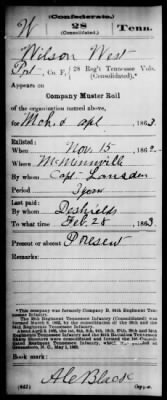 (Confederate.)
W 28 Tenn.
(Consolidated.)
Wilson West
Pvt, Co. F, 28 Reg't Tennessee Vols.
(Consolidated).*
Appears on
Company Muster Roll
of the organization named above,
for Mch & Apl, 1863.
Enlisted:
When Nov. 15, 1862.
Where McMinnville
By whom Capt.
Period 3 years
Last paid:
By whom
To what time Feb. 28, 1863.
Present or absent Present
Remarks:
*This company was formerly Company B, 84th Regiment Tennessee Infantry.
Book mark:
A C Black